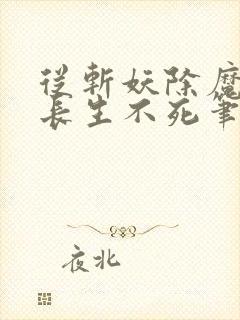 從斬妖除魔
長生不死筆
夜北